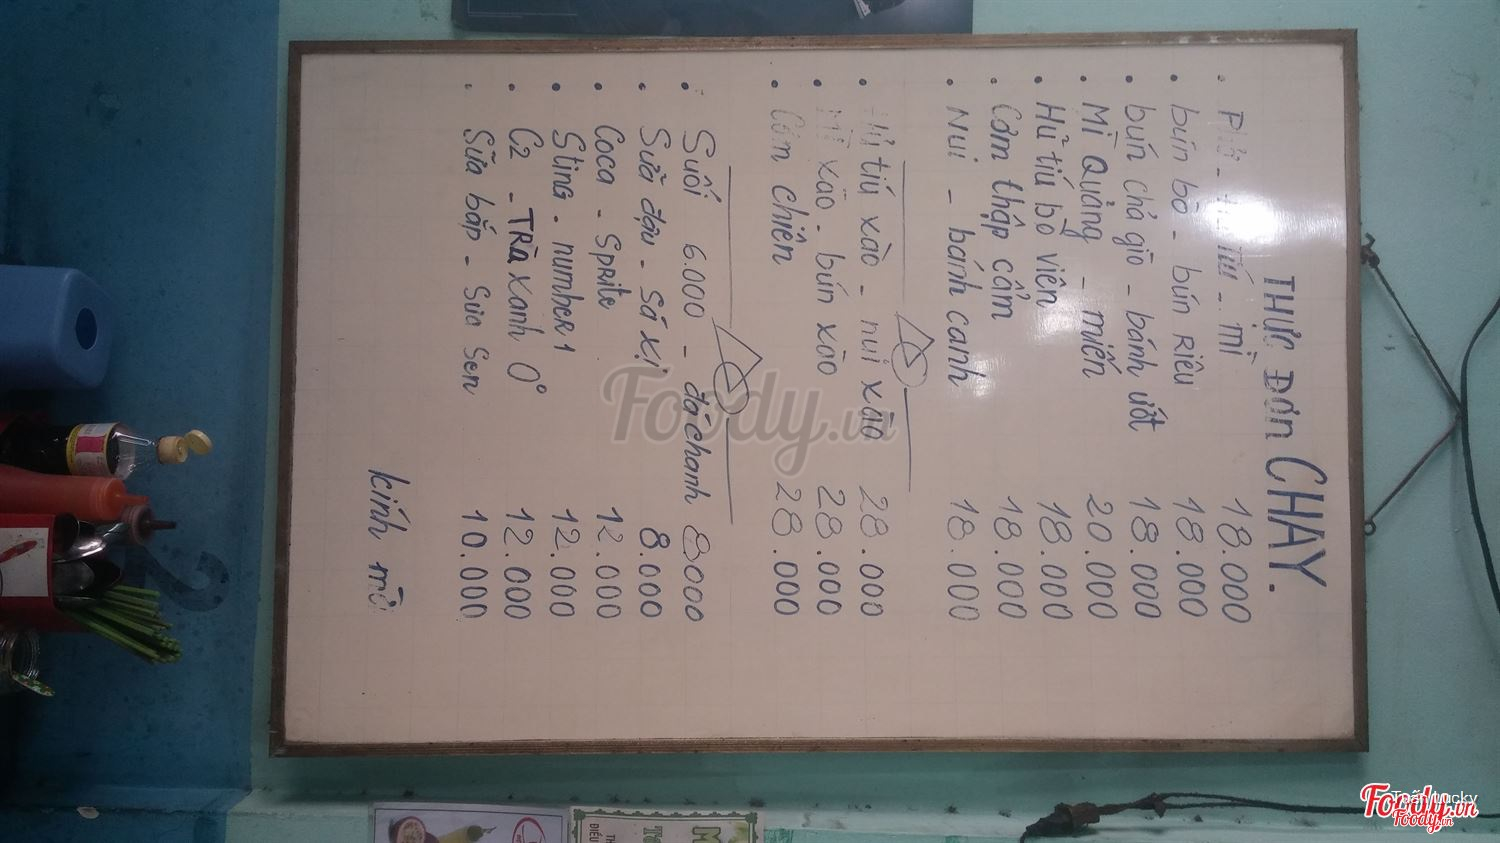 THỰC ĐƠN CHAY.
• Phở - Hủ Tiếú - mì 18.000
• bún bò - bún Riêu 18.000
• bún chả giò - bánh ướt 18.000
• Mì Quảng - miến 20.000
• Hủ tiếú bò viên 18.000
• Cơm thập cẩm 18.000
• Nui - bánh canh 18.000
• Hủ tiếú xào - nui xào 28.000
• Mì xào - bún xào 28.000
• Cơm chiên 28.000
• Suối 6.000 - đá chanh 8000
• Sữa đậu - Sá Xị 8.000
• Coca - Sprite 12.000
• Sting - number 1 12.000
• C2 - TRÀ Xanh 0° 12.000
• Sữa bắp - Sữa Sen 10.000
kính mời
Foody.vn
Foody.vn
Foody.vn